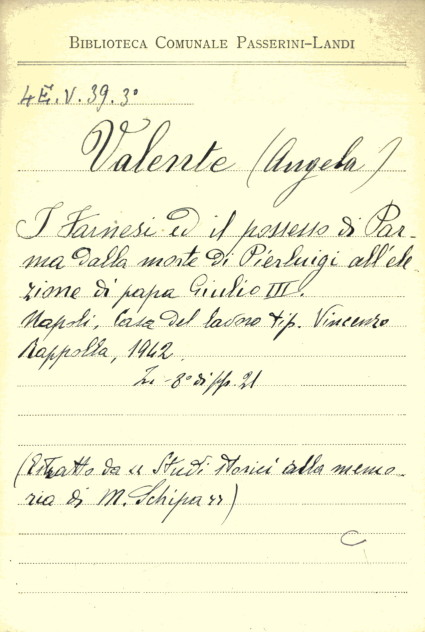 BIBLIOTECA COMUNALE PASSERINI-LANDI
4E.V.39.3°
Valente (Angela)
I Farnesi ed il possesso di Par-
ma dalla morte di Pierluigi all'ele
zione di papa Giulio III.
Napoli, Casa del lavoro tip. Vincenzo
Rappolla, 1942.
In-8° di pp. 21
(Estratto da Studi storici alla memo-
ria di M. Schipa)
C